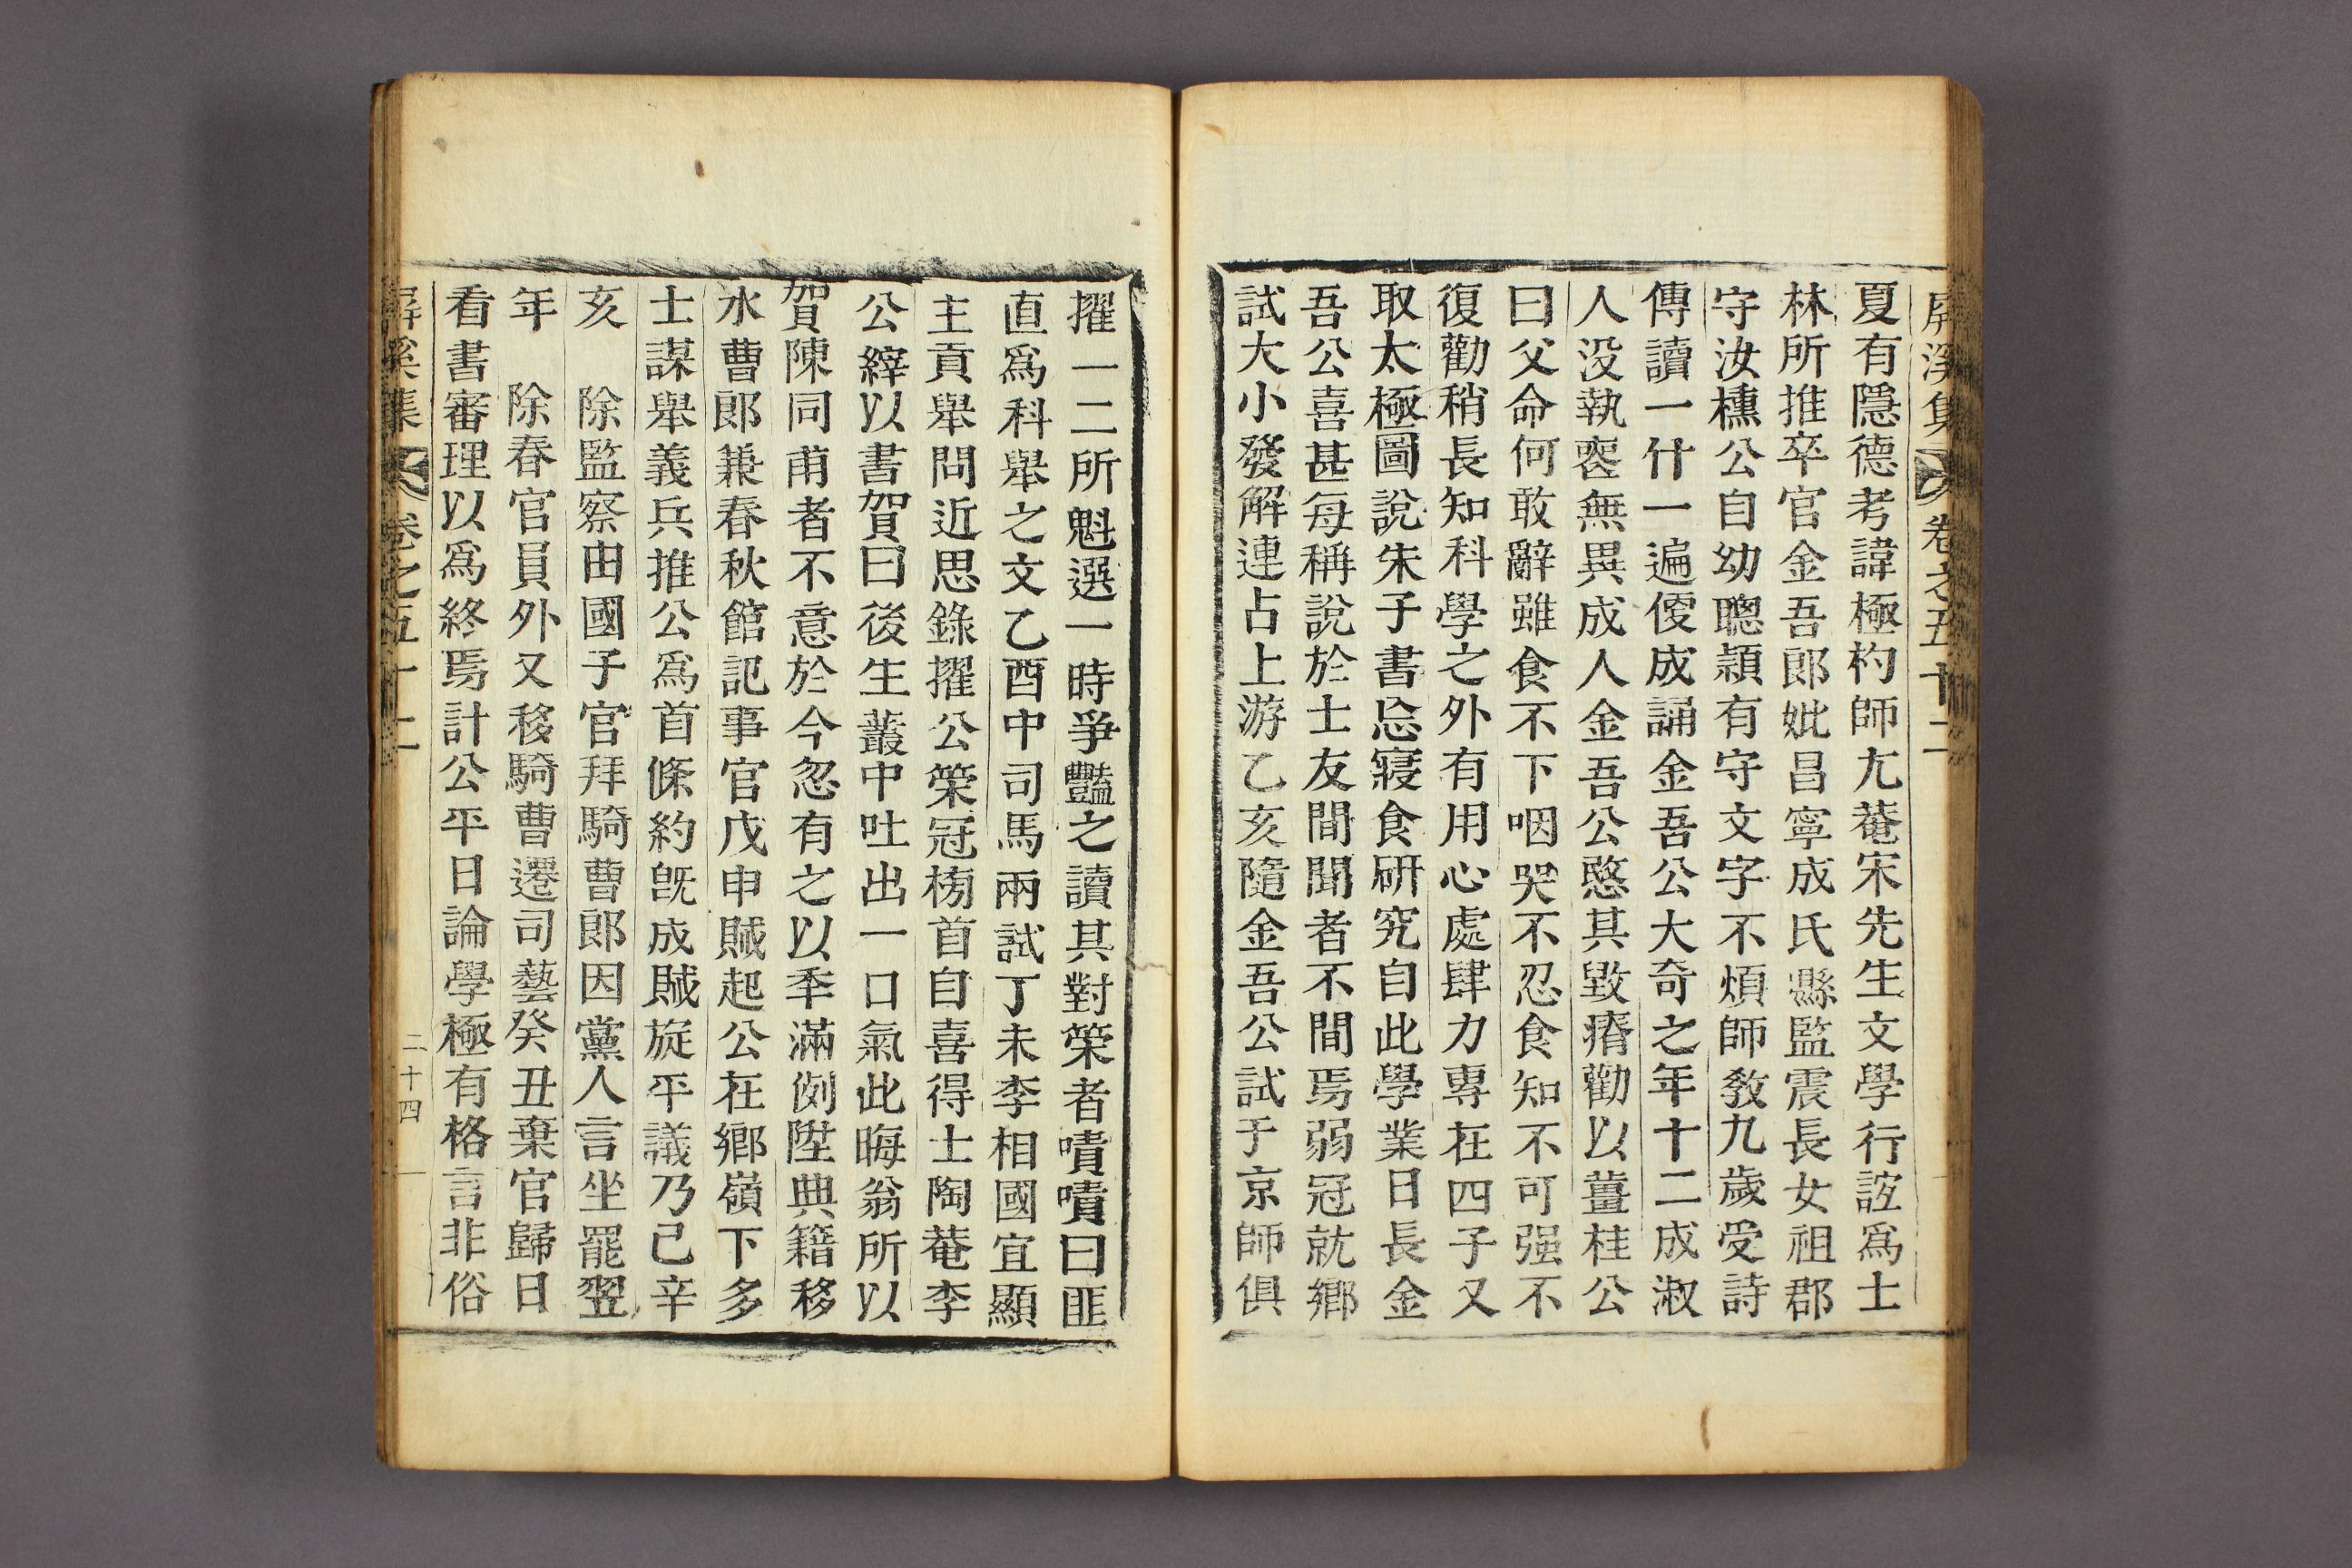 屏溪集 卷之五十二
夏有隱德考諱極杓師尤菴宋先生文學行誼爲士
林所推卒官金吾郎妣昌寧成氏縣監震長女祖郡
守汝櫄公自幼聰穎有守文字不煩師敎九歲受詩
傳讀一什一遍便成誦金吾公大奇之年十二成淑
人没執喪無異成人金吾公愍其毀瘠勸以薑桂公
曰父命何敢辭雖食不下咽哭不忍食知不可强不
復勸稍長知科學之外有用心處肆力專在四子又
取太極圖說朱子書忘寢食硏究自此學業日長金
吾公喜甚每稱說於士友間聞者不間焉弱冠就鄕
試大小發解連占上游乙亥隨金吾公試于京師俱
擢一二所魁選一時爭豔之讀其對策者嘖嘖曰匪
直爲科舉之文乙酉中司馬兩試丁未李相國宜顯
主貢舉問近思錄擢公策冠榜首自喜得士陶菴李
公縡以書賀曰後生叢中吐出一口氣此晦翁所以
賀陳同甫者不意於今忽有之以年滿例陞典籍移
水曹郎兼春秋館記事官戊申賊起公在鄕嶺下多
士謀舉義兵推公爲首條約旣成賊旋平議乃已辛
亥 除監察由國子官拜騎曹郎因黨人言坐罷翌
年 除春官員外又移騎曹遷司藝癸丑棄官歸日
看書審理以爲終焉計公平日論學極有格言非俗
屏溪集 卷之五十二 二十四